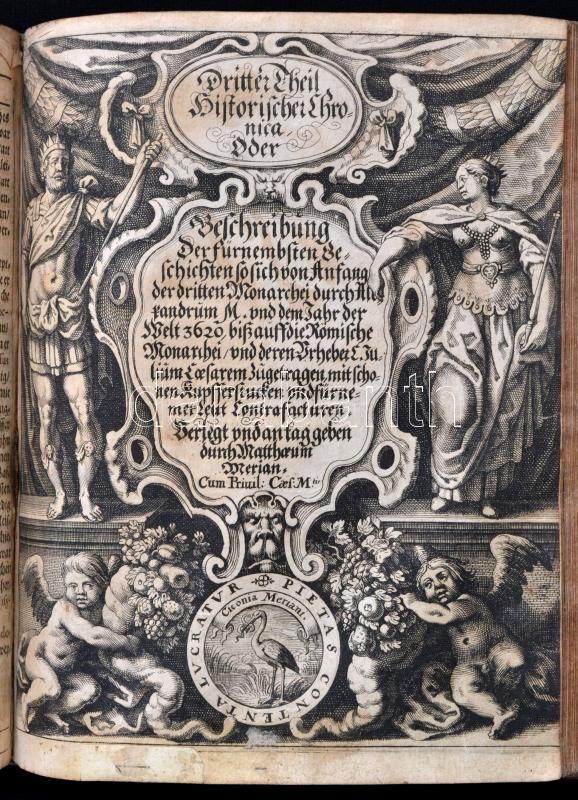 Dritter Theil
Historischer Chro-
nica,
Oder
Beschreibung
Der fürnembsten Ge-
schichten so sich von Anfang
der dritten Monarchei durch Ale-
xandrum M. vnd dem Jahr der
Welt 3620. biß auff die Römische
Monarchei, vnd deren Vrheber C. Ju-
lium Cæsarem zugetragen, mit scho-
nen Kupfferstucken vnd fürne-
mer Leut Contrafacturen.
Verlegt vnd an tag geben
durch Matthæum
Merian.
Cum Privil: Cæs. M.tis
PIETAS CONTENTA LUCRATUR
Ciconia Meriani.
darabanth